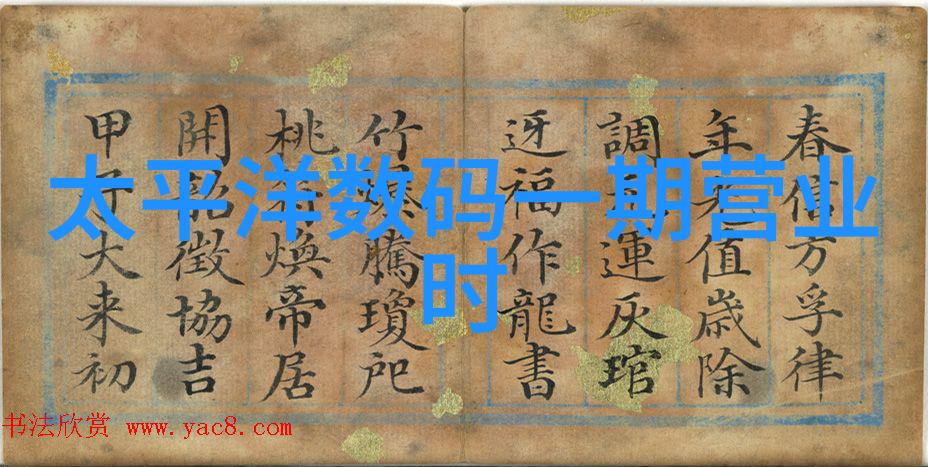 太平洋数码一期营业
时
春信方孚律
年值歲除
調運灰琯
迓福作龍書
竹爆騰瓊祀
桃符煥帝居
開韶徵協吉
甲子大来初
书法欣赏 www.yac8.com